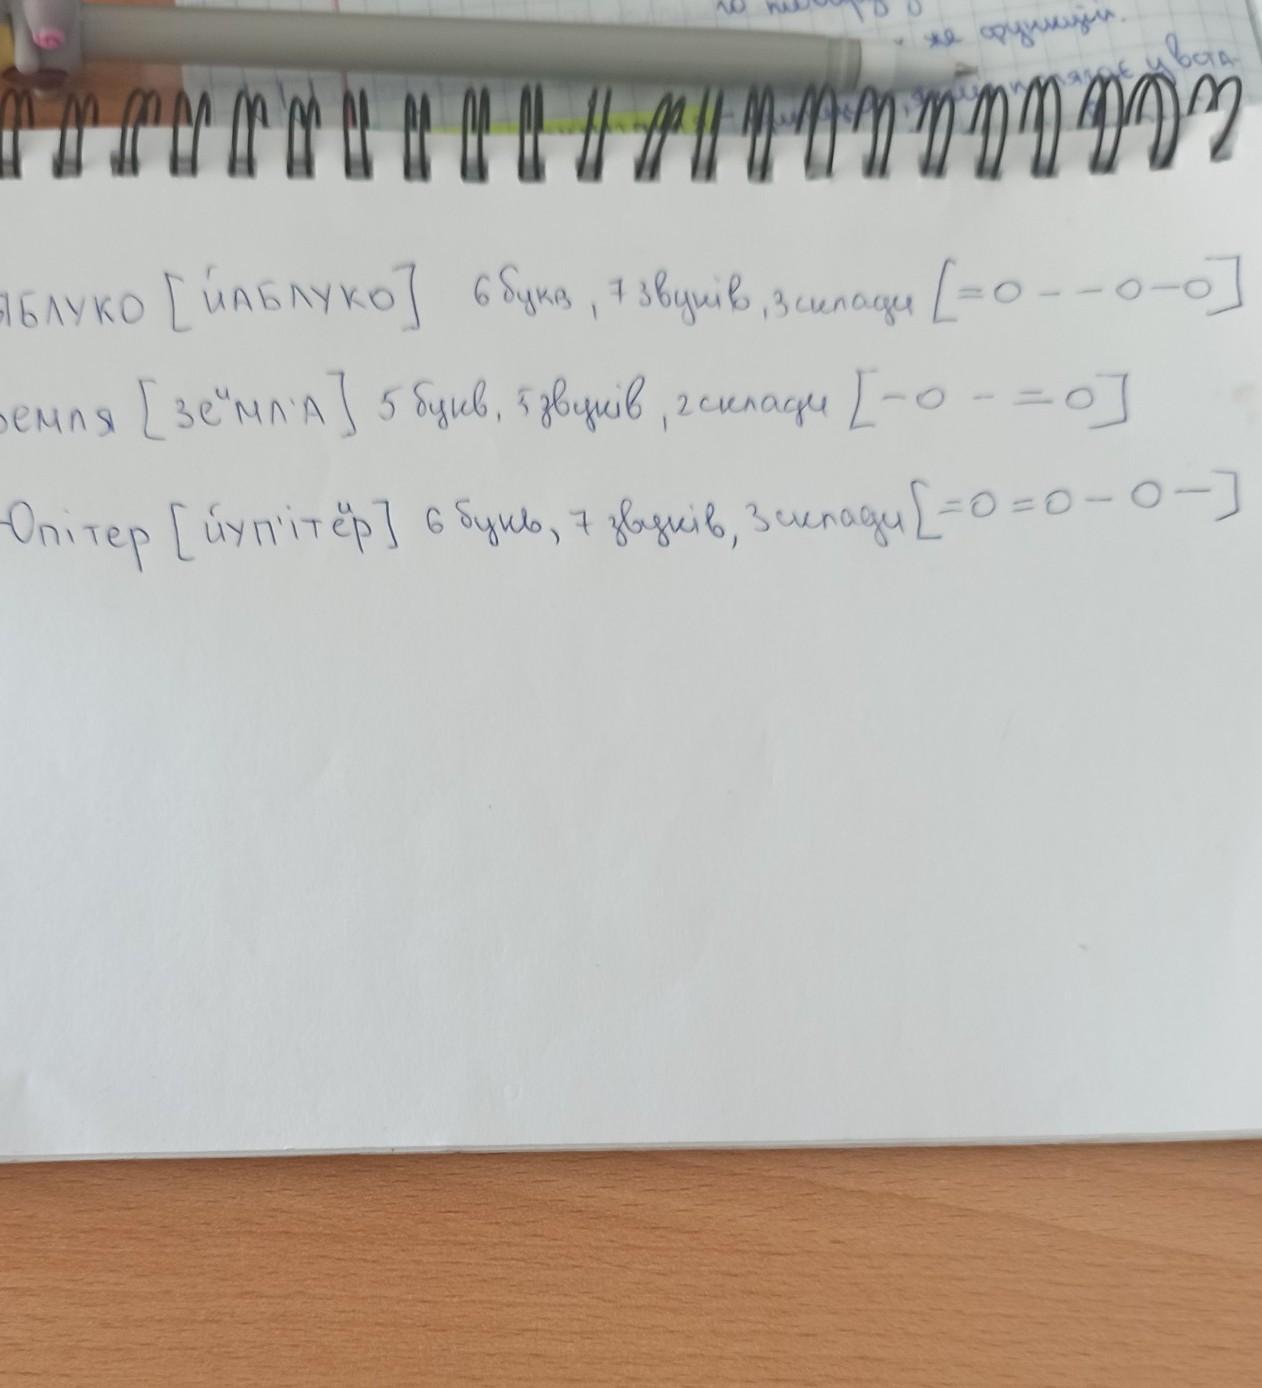 же функцій.
ЯБЛУКО [ЙАБЛУКО] 6 букв, 7 звуків, 3 склади [=О--О-О]
Земля [ЗЕᴎМЛ'А] 5 букв, 5 звуків, 2 склади [-О-=О]
Юпітер [йуп'ітеᴎр] 6 букв, 7 звуків, 3 склади [=О=О-О-]